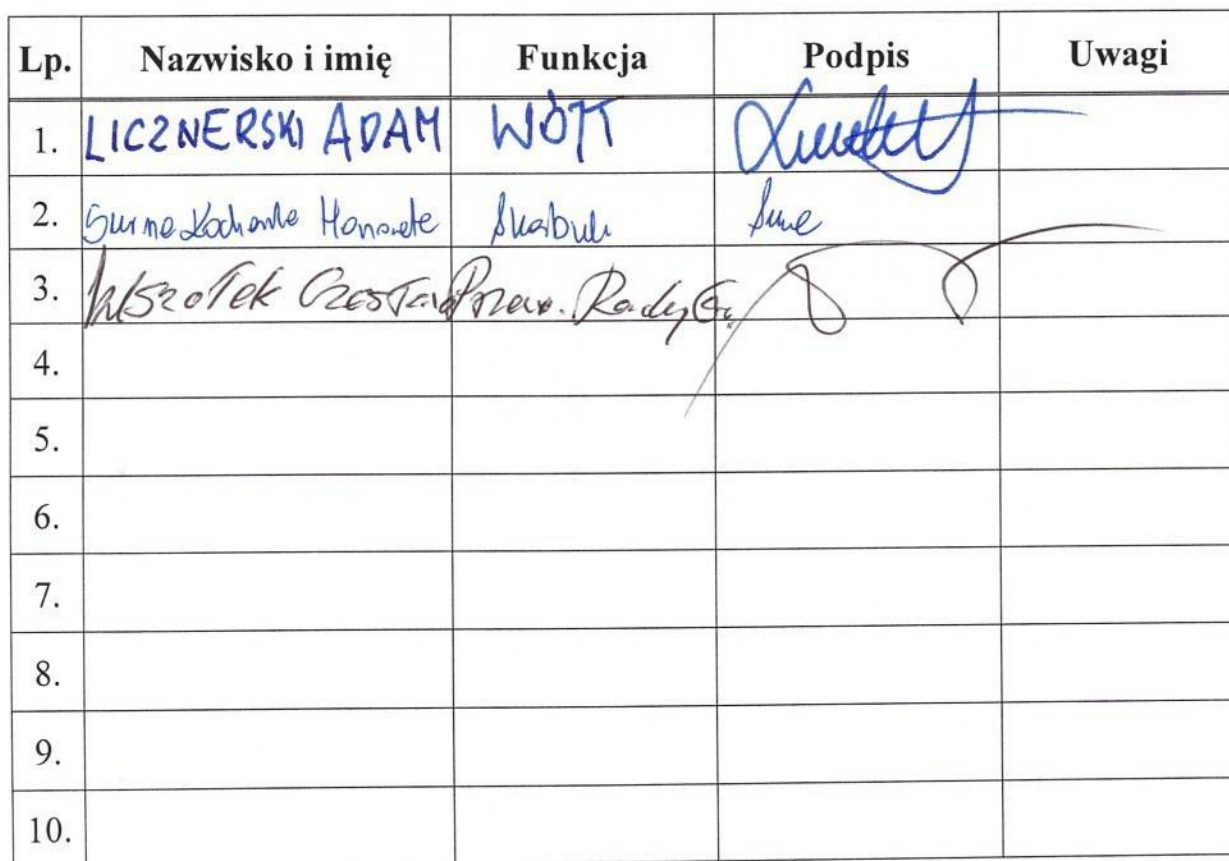 Lp. Nazwisko i imię Funkcja Podpis Uwagi
1. LICZNERSKI ADAM WÓJT
2. Honorata Skarbnik
3. Wszołek Czesław Przew. Rady Gm.
4.
5.
6.
7.
8.
9.
10.